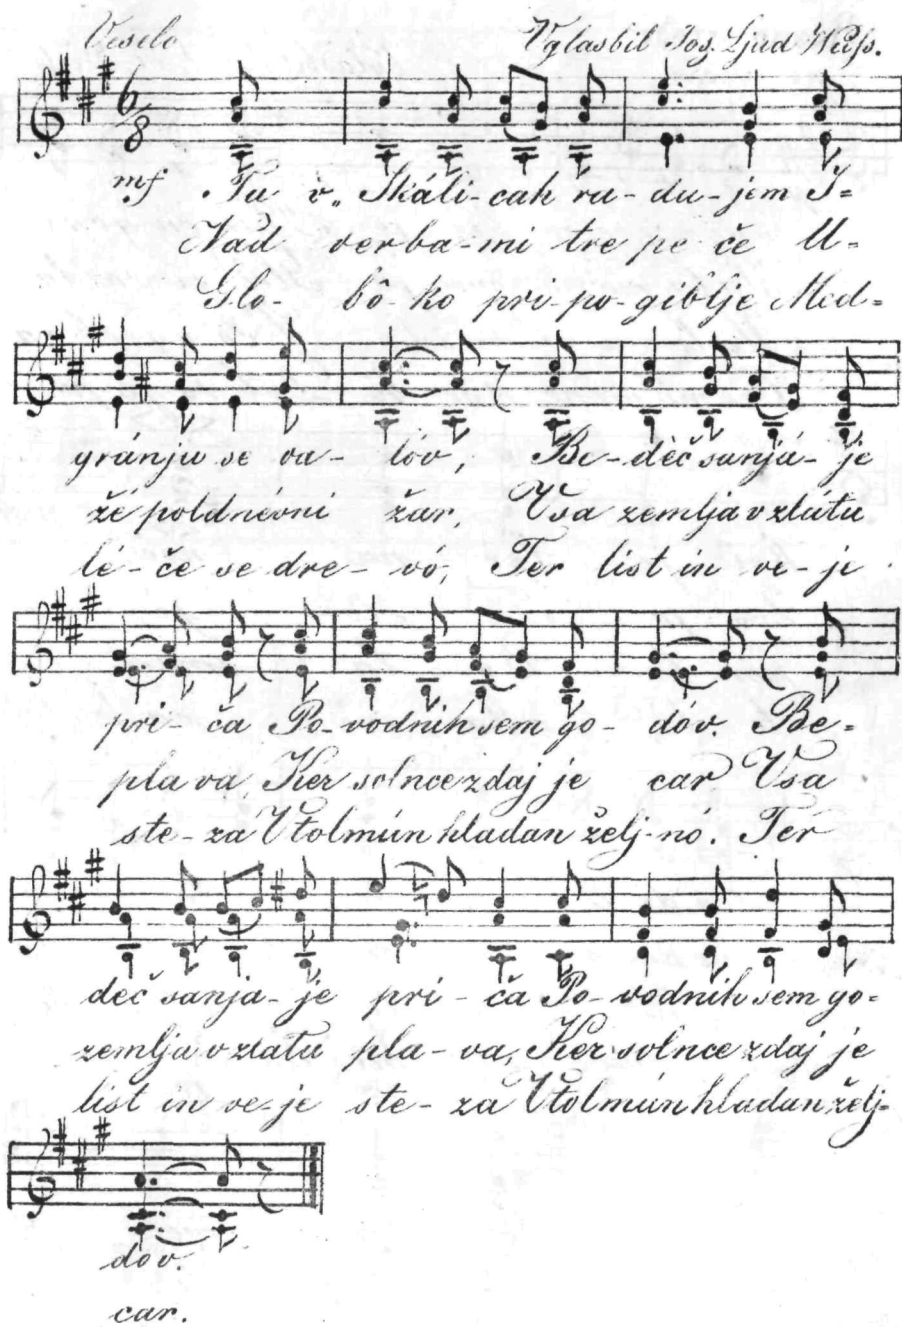 Veselo Vglasbil Jos. Ljud Weiss.
6/8
mf Tu v „Skáli-cah ra-du-jem I=
Nad verba-mi tre pe če U-
Glo-bô-ko pri-po-giblje Med=
gránju se va-lóv, Be-dèč sanjá-je
žé poldnevni žar, Vsa zemlja v zlátu
lé-če se dre-vó, Ter list in ve-je
pri-ča Po-vodnih sem go-dóv. Be=
pla va, Ker solnce zdaj je car Vsa
ste-zá V tolmún hladan želj-no. Ter
deč sanja-je pri-ča Po-vodnih sem go=
zemlja v zlatu pla-va, Ker solnce zdaj je
list in ve-je ste-zá V tolmún hladan želj-
dov.
car.